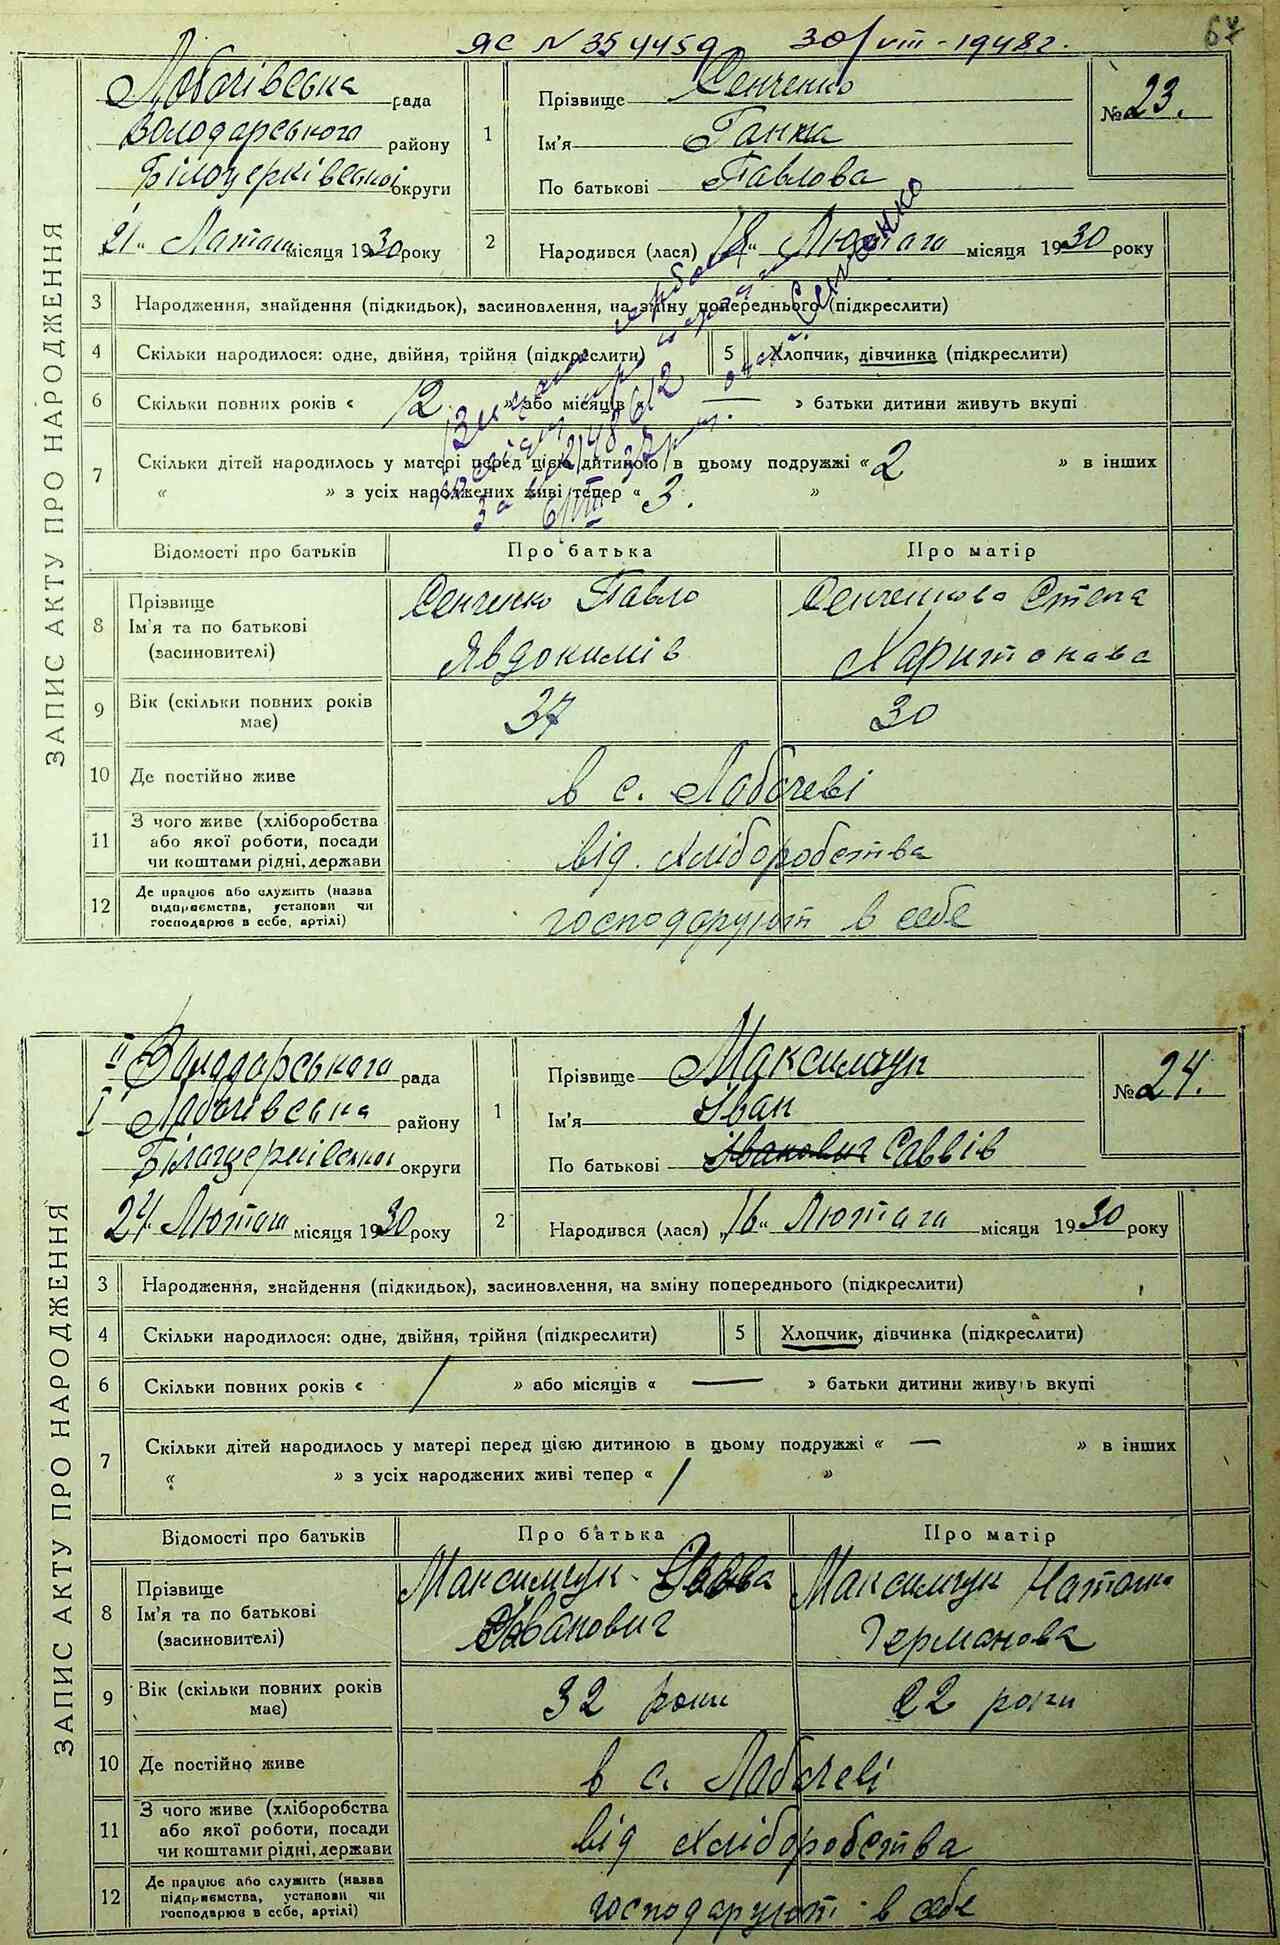 ЯС N 354459 30/VIII - 1948 г.
67
ЗАПИС АКТУ ПРО НАРОДЖЕННЯ
Лобачівська рада
Володарського району
Білоцерківської округи
21 " місяця 1930 року
1 Прізвище Сенченко
Ім'я Ганна
По батькові Павлова
№ 23.
2 Народився (лася) 18 " Лютого місяця 1930 року
3 Народження, знайдення (підкидьок), засиновлення, на зміну попереднього (підкреслити)
4 Скільки народилося: одне, двійня, трійня (підкреслити) 5 Хлопчик, дівчинка (підкреслити)
6 Скільки повних років « 12 » або місяців « — » батьки дитини живуть вкупі
7 Скільки дітей народилось у матері перед цією дитиною в цьому подружжі « 2 » в інших
« » з усіх народжених живі тепер « 3. »
Відомості про батьків Про батька Про матір
8 Прізвище Ім'я та по батькові (засиновителі)
Сенченко Павло Явдокимів
Сенченкова Степа Харитонова
9 Вік (скільки повних років має) 37 30
10 Де постійно живе в с. Лобочеві
11 З чого живе (хліборобства або якої роботи, посади чи коштами рідні, держави від хліборобства
12 Де працює або служить (назва підприємства, установи чи господарює в себе, артілі) господарують в себе
ЗАПИС АКТУ ПРО НАРОДЖЕННЯ
II Володарського рада
I Лобачівська району
Білацерківської округи
24. Лютого місяця 1930 року
1 Прізвище Максимчук
Ім'я Іван
По батькові Іванович Саввів
№ 24.
2 Народився (лася) „ 16 " Лютого місяця 1930 року
3 Народження, знайдення (підкидьок), засиновлення, на зміну попереднього (підкреслити)
4 Скільки народилося: одне, двійня, трійня (підкреслити) 5 Хлопчик, дівчинка (підкреслити)
6 Скільки повних років « 1 » або місяців « — » батьки дитини живуть вкупі
7 Скільки дітей народилось у матері перед цією дитиною в цьому подружжі « — » в інших
« » з усіх народжених живі тепер « 1 »
Відомості про батьків Про батька Про матір
8 Прізвище Ім'я та по батькові (засиновителі)
Максимчук Савва Іванович
Максимчук Наталка Германова
9 Вік (скільки повних років має) 32 роки 22 роки
10 Де постійно живе в с. Лобочеві
11 З чого живе (хліборобства або якої роботи, посади чи коштами рідні, держави від хліборобства
12 Де працює або служить (назва підприємства, установи чи господарює в себе, артілі) господарують в себе